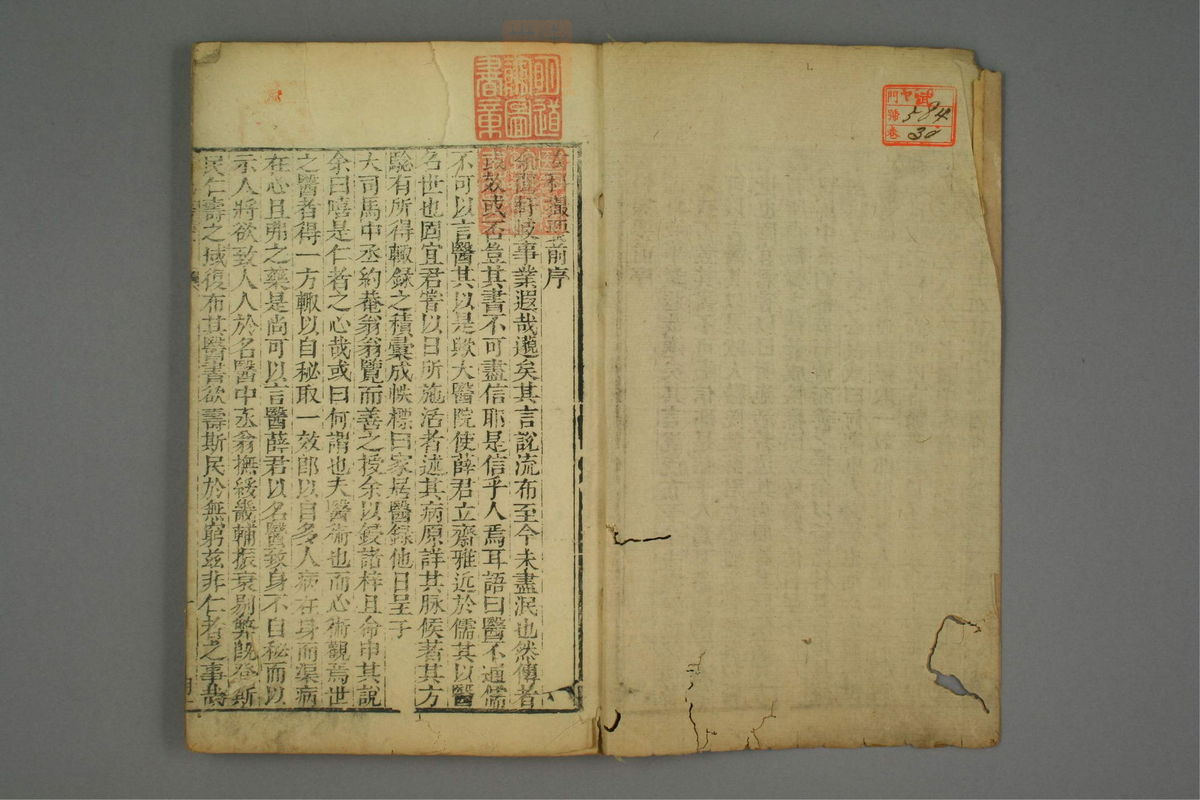 門 中 584
號
卷 30
科撮要前序
岐事業遐哉邈矣其言說流布至今未盡泯也然傳者
或效或否豈其書不可盡信耶是信乎人焉耳語曰醫不通儒
不可以言醫其以是歟大醫院使薛君立齋雅近於儒其以醫
名世也固宜君嘗以日所施活者述其病原詳其脉候著其方
驗有所得輙録之積彙成帙標曰家居醫録他日呈于
大司馬中丞約菴翁翁覽而善之授余以鋟諸梓且命申其說
余曰嘻是仁者之心哉或曰何謂也夫醫術也而心術觀焉世
之醫者得一方輙以自秘取一效郎以自多人病在身而渠病
在心且弗之藥是尚可以言醫薛君以名醫致身不自秘而以
示人將欲致人人於名醫中丞翁撫綏畿輔振衰剔弊旣登斯
民仁壽之域復布其醫書欲壽斯民於無窮茲非仁者之事哉